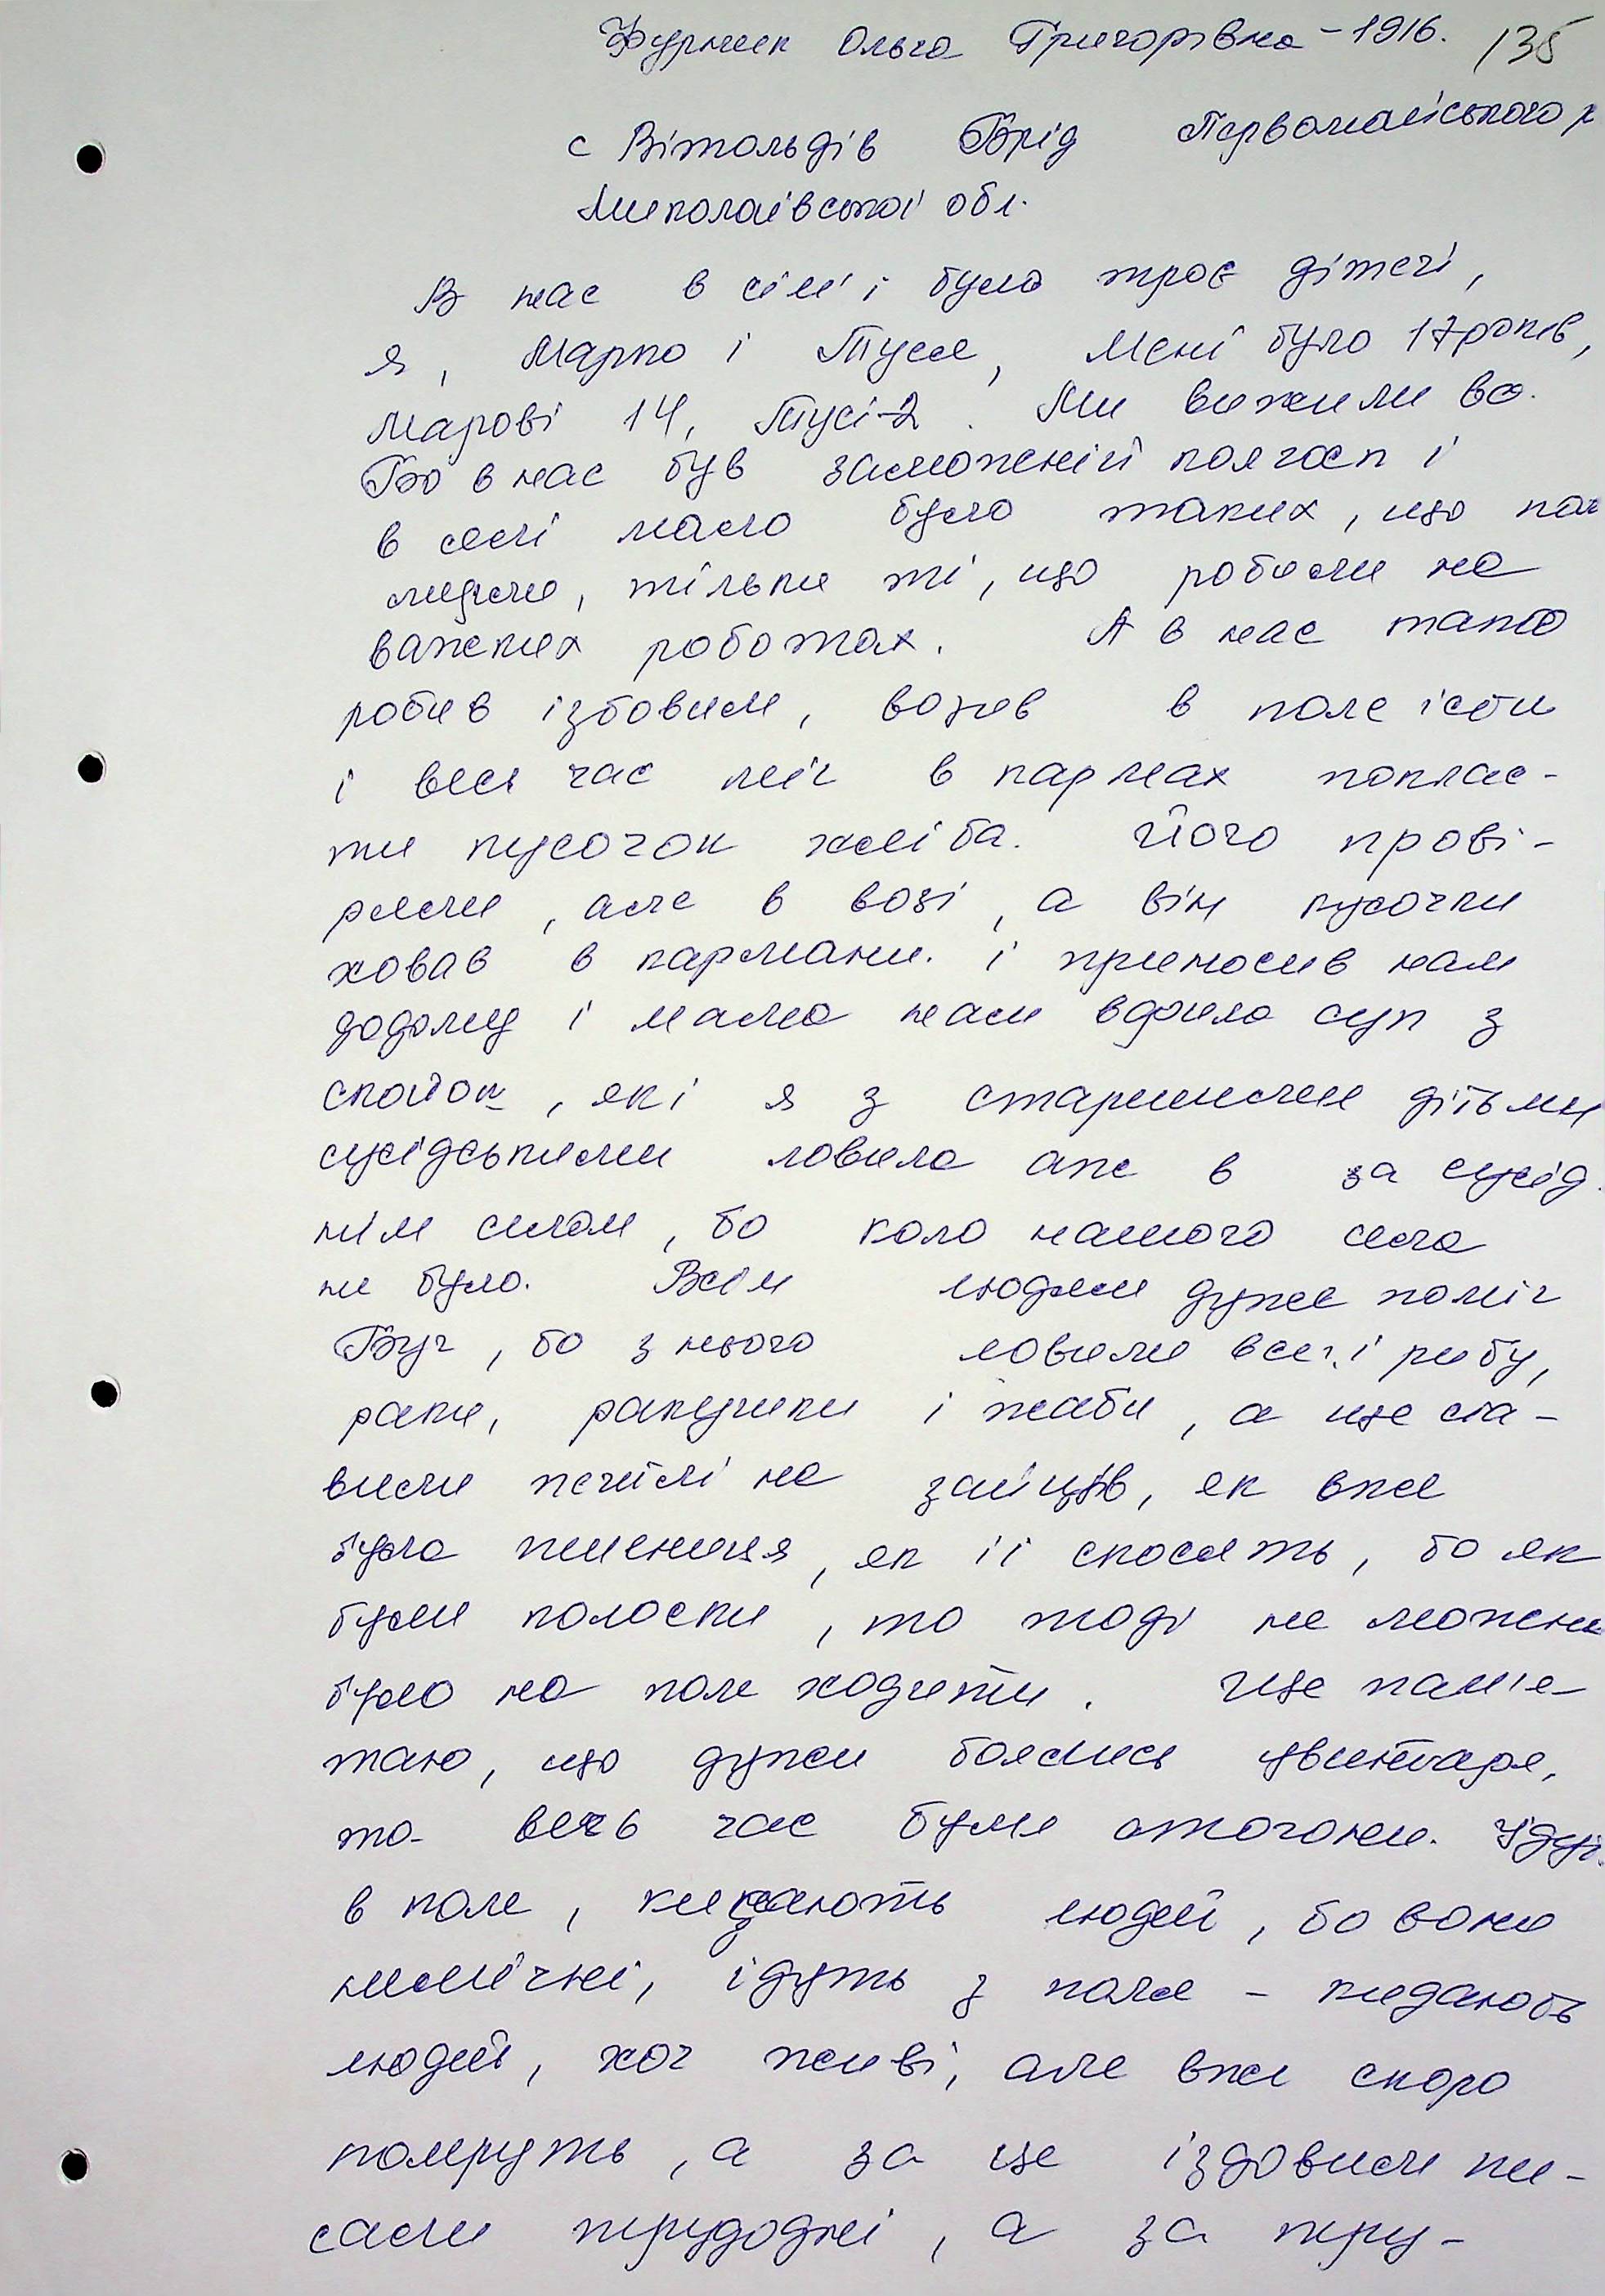 Журмик Ольга Григорівна - 1916. 135
с Вітольдів Брід Первомайського р
Миколаївської обл.
В нас в сім'ї було троє дітей,
я, Марко і Туся, Мені було 17 років,
Маркові 14, Тусі-2. Ми вижили во.
Бо в нас був заможній колгосп і
в селі мало було таких, що пох
лидили, тільки ті, що робили на
важких роботах. А в нас тато
робив їздовим, возив в поле їсти
і весь час міг в карман поклас-
ти кусочок хліба. Його прові-
ряли, але в возі, а він кусочки
ховав в кармани. і приносив нам
додому і мама нам варила суп з
спойок, які я з старшими дітьми
сусідськими ловила аж в за сусід.
нім силом, бо коло нашого села
не було. Всім людям дуже поміг
Буг, бо з нього ловили всі і рибу,
раки, ракушки і жаби, а ще ста-
вили петлі на зайців, як вже
була пшениця, як її скосять, бо як
були колоски, то тоді не можна
було на поле ходити. Ще пам'я-
таю, що дужи боялись цвинтаря,
то весь час були отогони. Ідуть
в поле, кидають людей, бо вони
нимічні, ідуть з поля - кидають
людей, хоч живі, але вже скоро
помруть, а за це їздовим пи-
сали трудодні, а за тру-